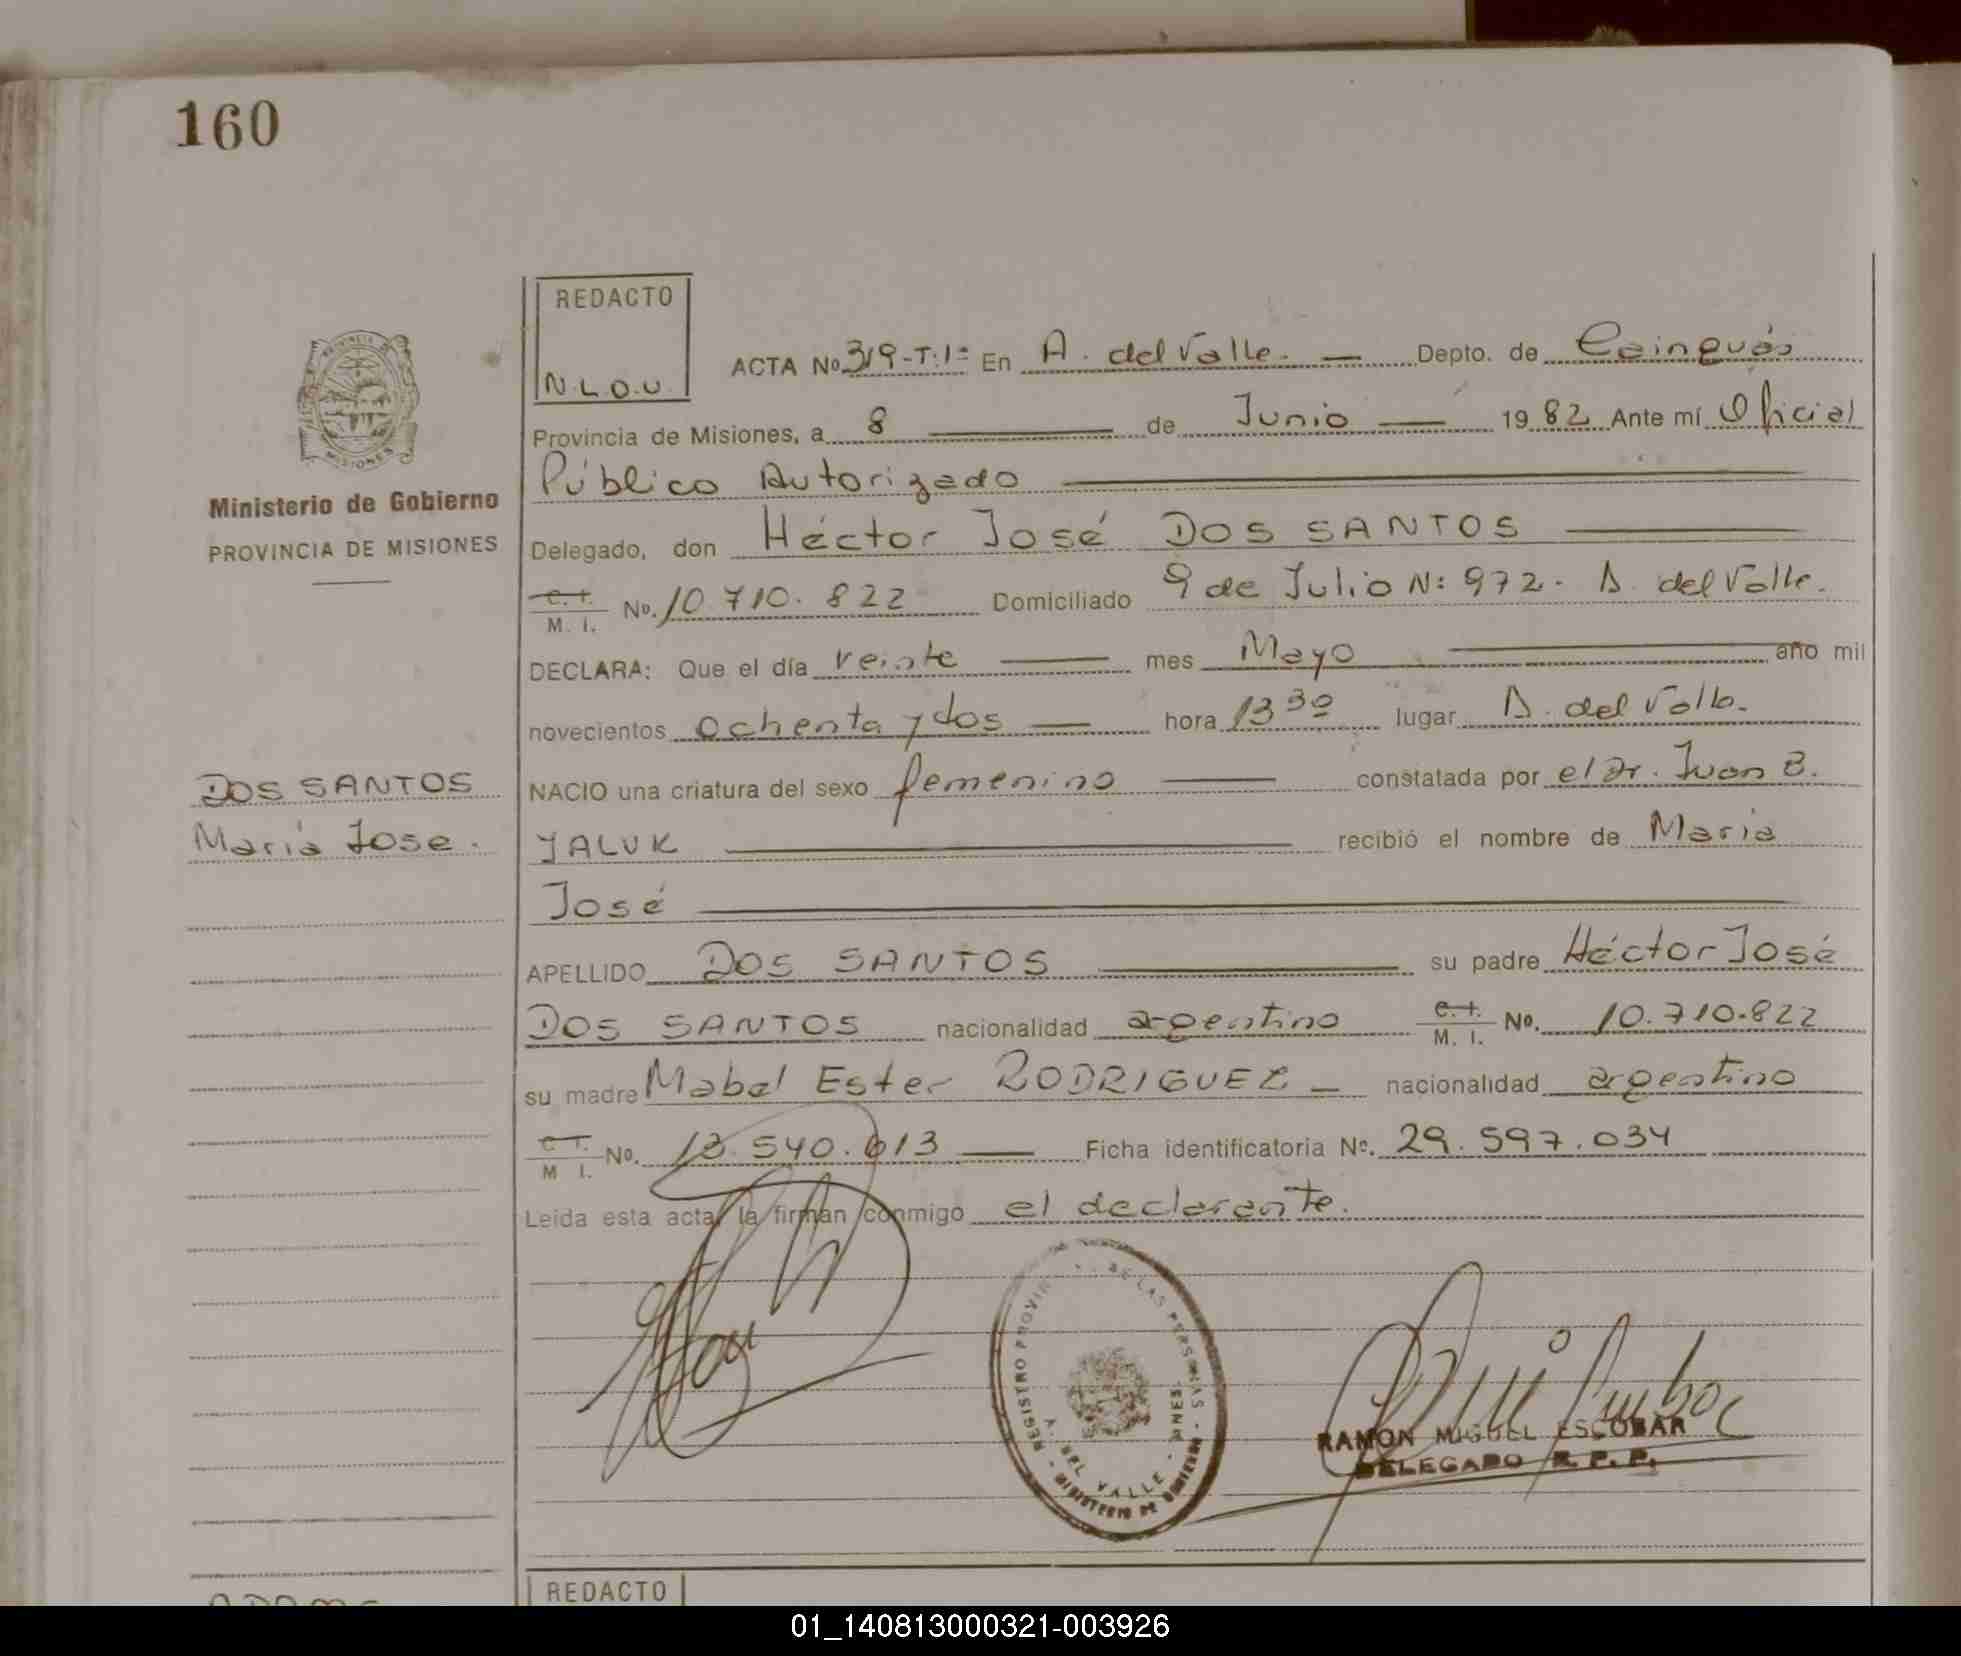 160
REDACTO
N.L.O.U.
ACTA No 319-T:1º En A. del Valle. — Depto. de Cainguás
Provincia de Misiones, a 8 — de Junio — 1982 Ante mí Oficial
Público Autorizado
Delegado, don Héctor José DOS SANTOS
C. I. M. I. No. 10.710.822 Domiciliado 9 de Julio N: 972. A. del Valle.
DECLARA: Que el día veinte — mes Mayo — año mil
novecientos ochenta y dos — hora 13 30 lugar A. del Valle.
NACIO una criatura del sexo femenino — constatada por el Dr. Juan B.
YALUK — recibió el nombre de María
José
APELLIDO DOS SANTOS — su padre Héctor José
DOS SANTOS nacionalidad argentino C. I. M. I. No. 10.710.822
su madre Mabel Ester RODRIGUEZ — nacionalidad argentino
C I. M I. No. 13.540.613 — Ficha identificatoria No. 29.597.034
Leida esta acta, la firman conmigo el declarante.
MISIONES
Ministerio de Gobierno
PROVINCIA DE MISIONES
DOS SANTOS
María Jose.
REGISTRO PROVIN DE LAS PERSONAS
A. DEL VALLE - MNES.
MINISTERIO DE GOBIERNO
RAMON MIGUEL ESCOBAR
DELEGADO R. P. P.
REDACTO
01_140813000321-003926